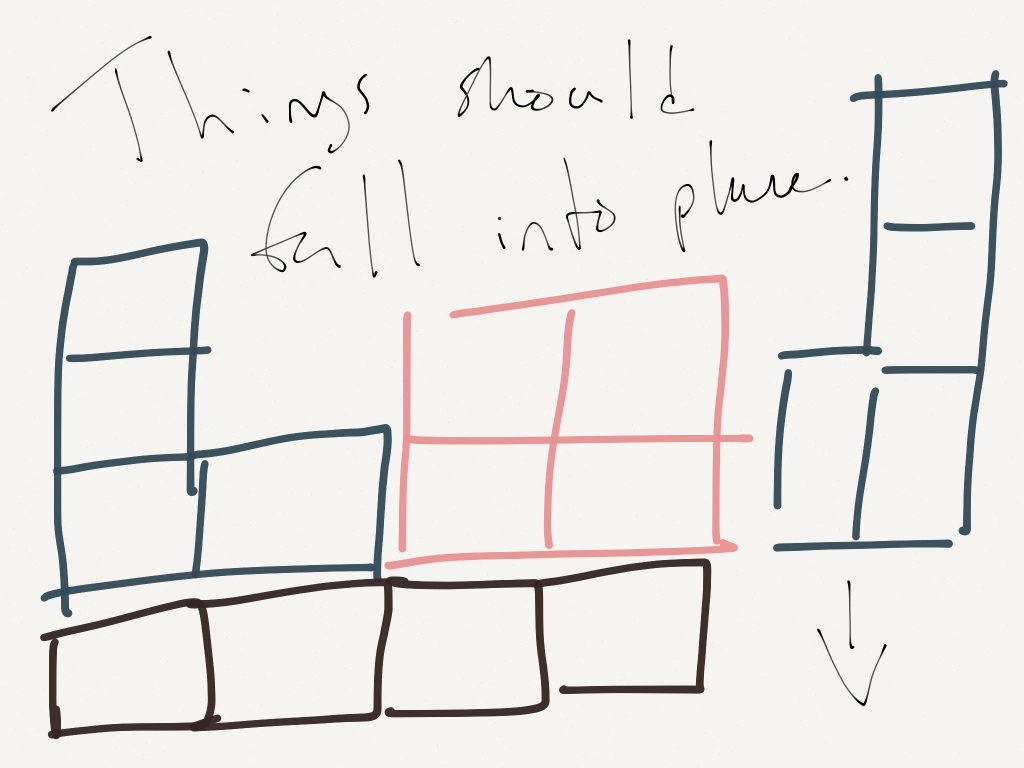 Things should
fall into place.